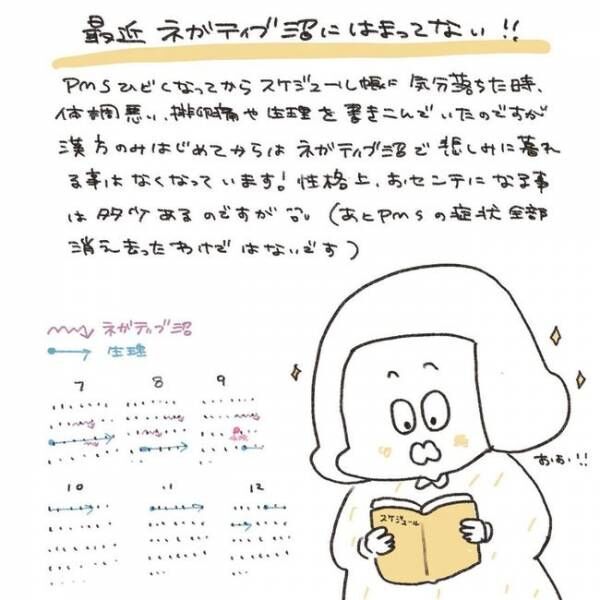 最近 ネガティブ沼にはまってない!!
PMSひどくなってからスケジュール帳に 気分落ちた時、
体調悪い、排卵痛や生理を書きこんでいたのですが
漢方のみはじめてからは ネガティブ沼で悲しみに暮れ
る事はなくなっています!性格上、おセンチになる事
は多々あるのですが (あとPMSの症状全部
消え去ったわけではないです)
ネガティブ沼
生理
7 8 9
10 11 12
スケジュール
おぉ!!